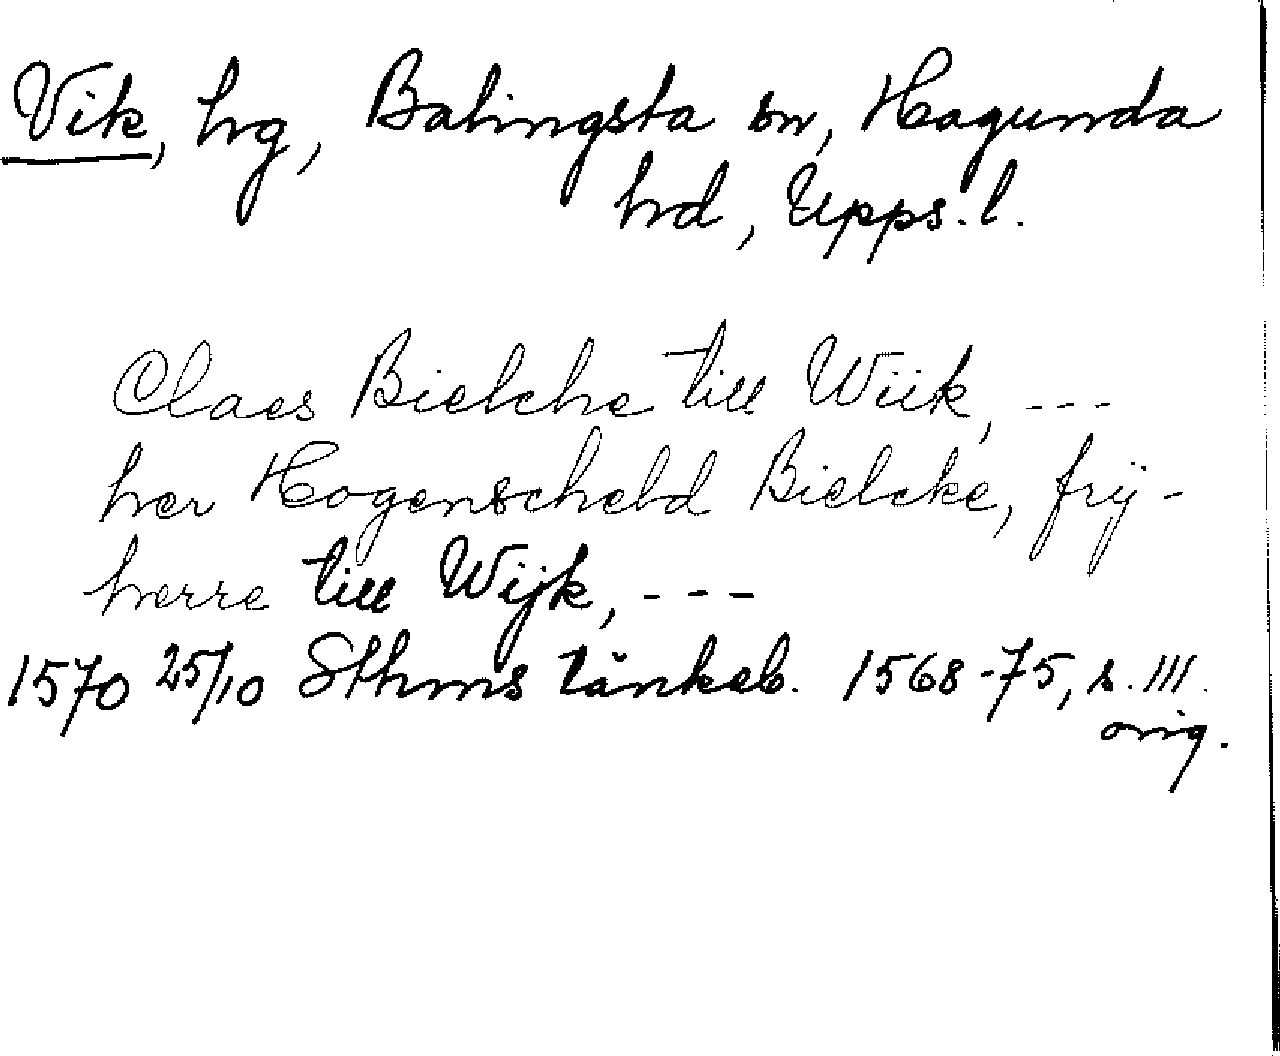 Vik, hg, Balingsta sn, Hagunda
hrd, Upps. l.
Claes Bielche till Wiik, ---
her Hogenscheld Bielcke, frÿ-
herre till Wijk, ---
1570 25/10 Sthms tänkeb. 1568-75, s. 111.
orig.